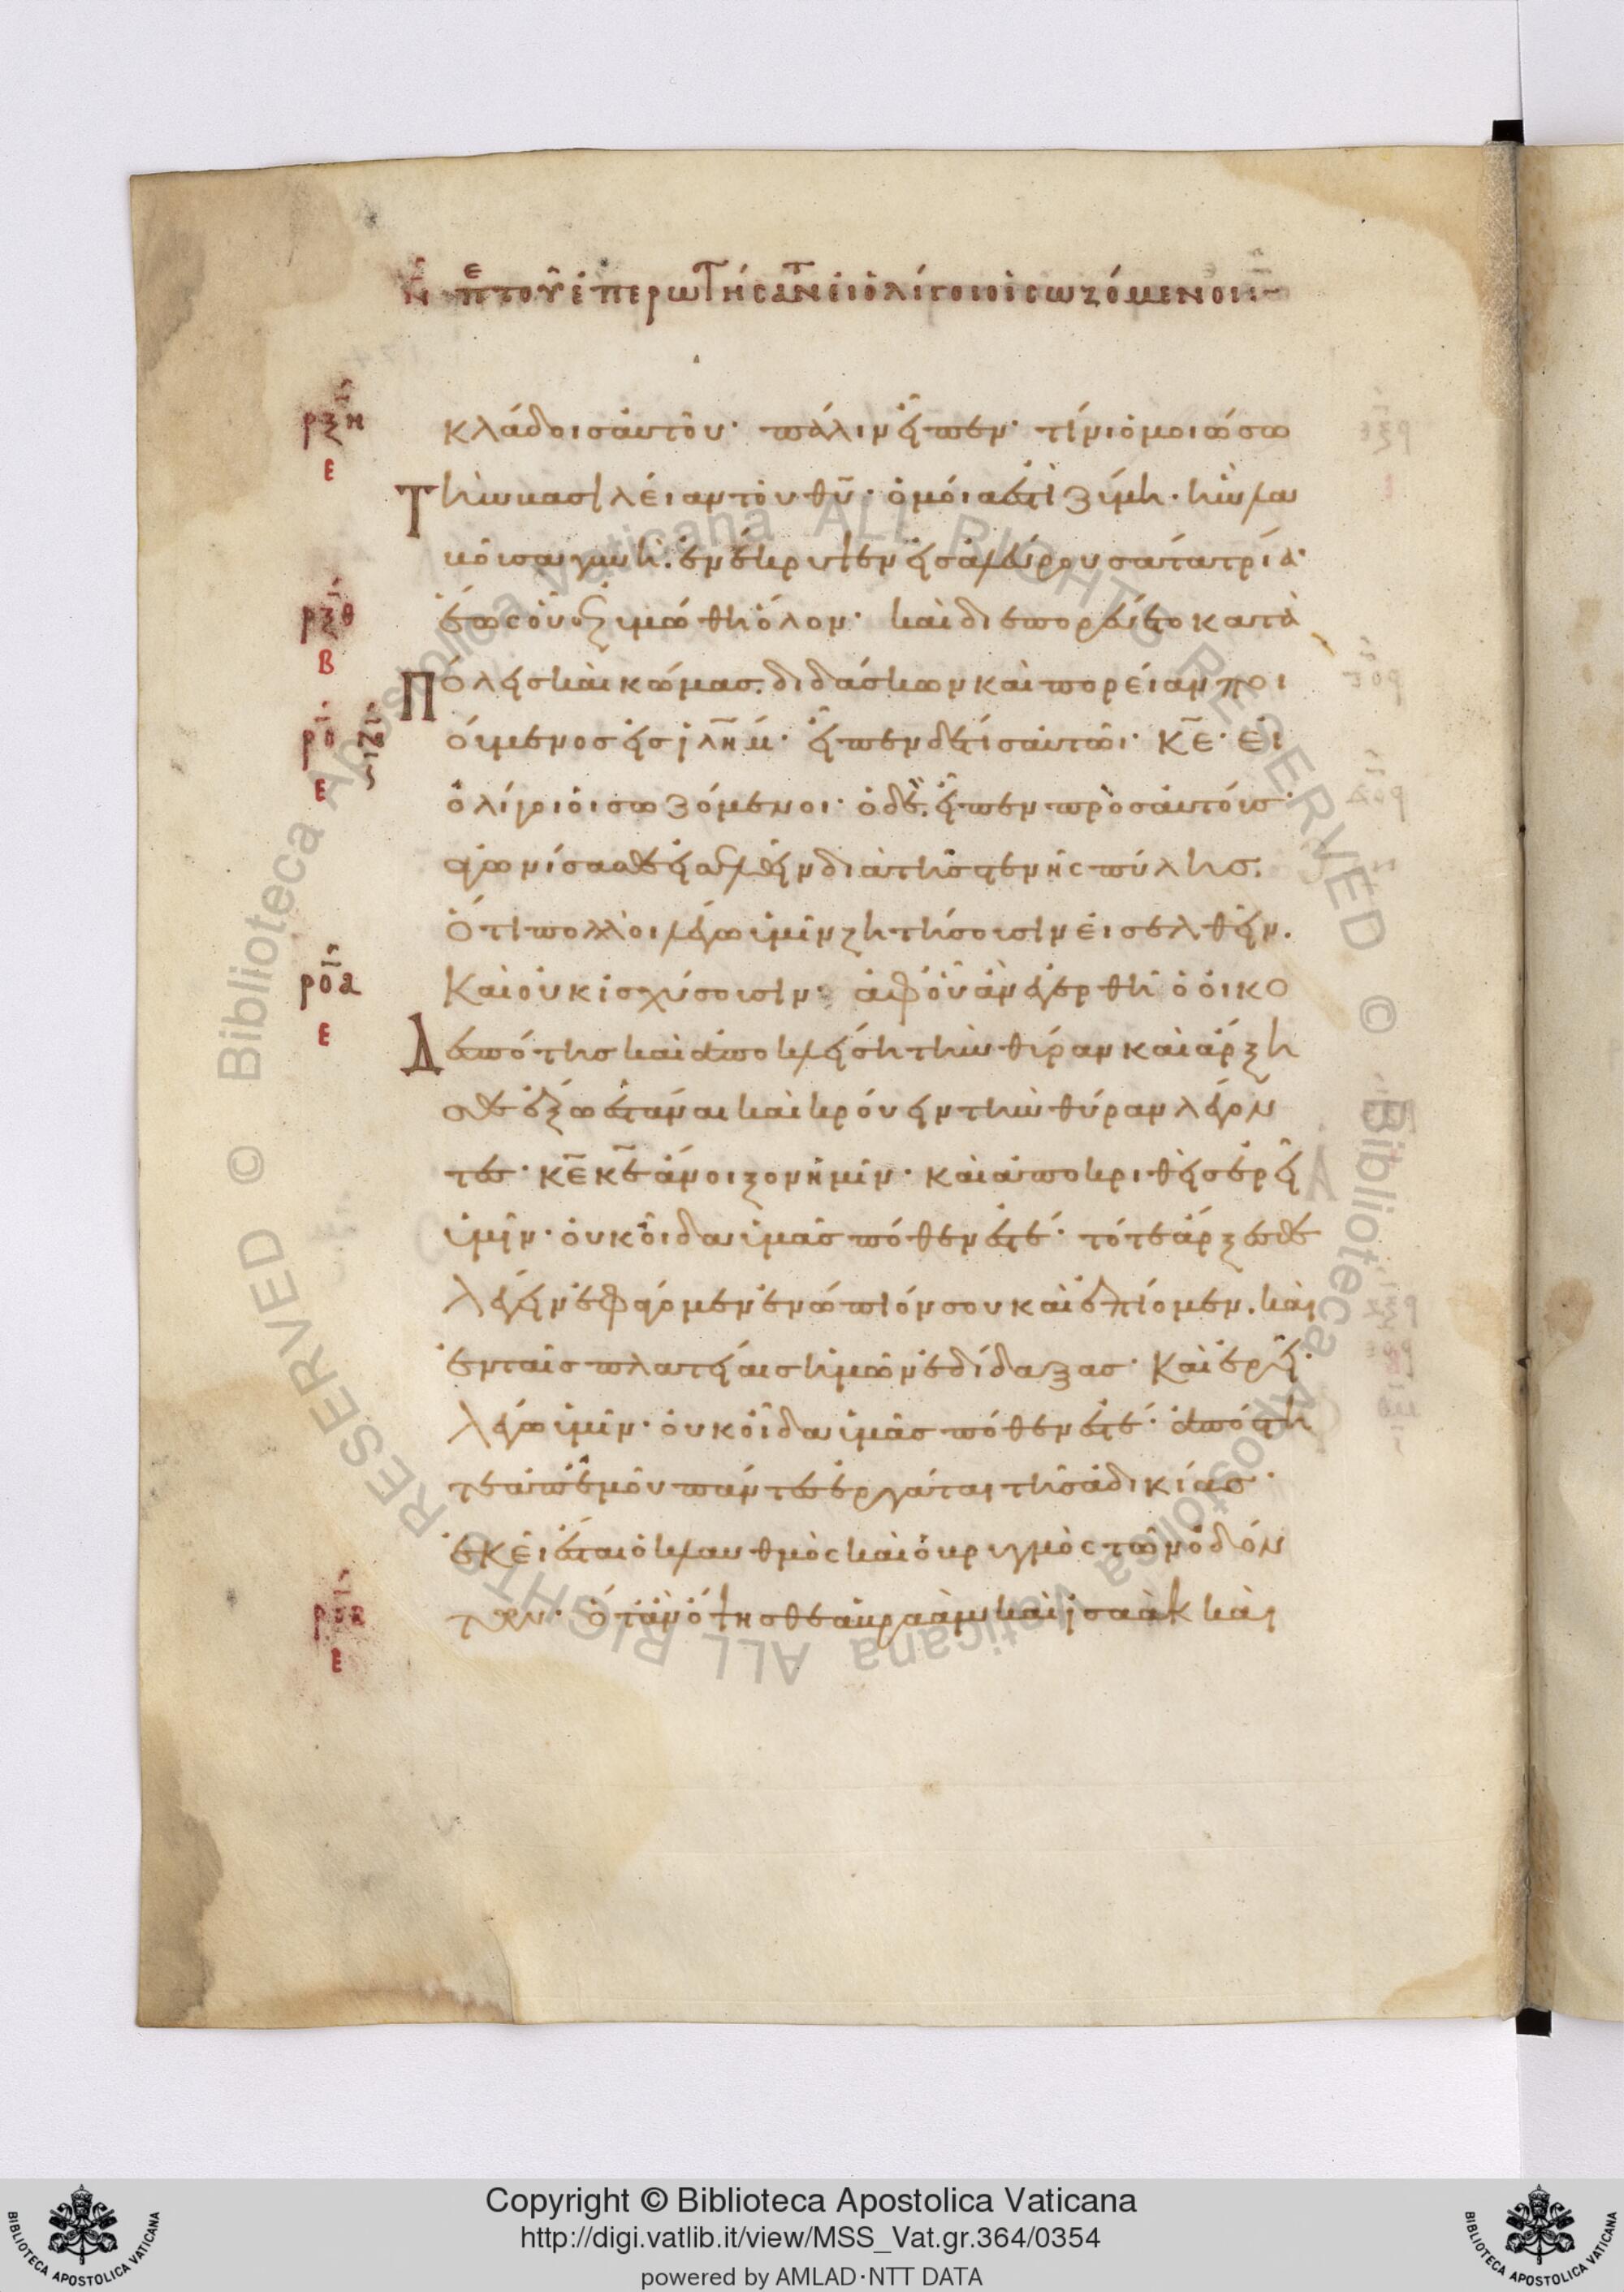 Ν πε του επερωτήσαντ ει ολίγοι οι σωζόμενοι
ρξη Ε κλάδοις αὐτοῦ· πάλιν εἶπεν· τίνι ὁμοιώσω
Τὴν βασιλείαν τοῦ θῦ· ὁμοία ἐστὶ ζύμη· ἣν λα
βοῦσα γυνὴ. ἐνέκρυψεν εἰς ἀλεύρου σάτα τρία·
ρξθ Β ἕως οὗ ἐζυμώθη ὅλον· καὶ διεπορεύετο κατὰ
Πόλεις καὶ κώμας. διδάσκων καὶ πορείαν ποι
ρο Ε ούμενος εἰς ιλημ· εἶπεν δέ τις αὐτῶι· κε· εἰ
ὀλίγοι οἱ σωζόμενοι· ὁ δὲ. εἶπεν πρὸς αὐτούς·
ἀγωνίσασθε εἰσελθεῖν διὰ τῆς στενῆς πύλης.
ὅτι πολλοὶ λέγω ὑμῖν ζητήσουσιν εἰσελθεῖν.
ροα Ε Καὶ οὐκ ἰσχύσουσιν· ἀφ οὗ ἂν ἐγερθῆ ὁ οἰκο
Δεσπότης καὶ ἀποκλείση τὴν θύραν καὶ ἄρξη
σθε ἔξω ἑστάναι καὶ κρούειν τὴν θύραν λέγον
τες· κε κε ἄνοιξον ἡμῖν· καὶ ἀποκριθεὶς ἐρεῖ
ὑμῖν· οὐκ οἶδα ὑμᾶς πόθεν ἐστέ· τότε ἄρξεσθε
λέγειν ἐφάγομεν ἐνώπιόν σου καὶ ἐπίομεν. καὶ
ἐν ταῖς πλατείαις ἡμῶν ἐδίδαξας· Καὶ ἐρεῖ·
λέγω ὑμῖν· οὐκ οἶδα ὑμᾶς πόθεν ἐστέ· ἀπόστη
τε ἀπ ἐμοῦ πάντες ἐργάται τῆς ἀδικίας·
ἐκεῖ ἔσται ὁ κλαυθμὸς καὶ ὁ βρυγμὸς τῶν ὀδόν
ροβ Ε των· ὅταν ὄψησθε ἀβραὰμ καὶ ἰσαὰκ καὶ
Copyright © Biblioteca Apostolica Vaticana
http://digi.vatlib.it/view/MSS_Vat.gr.364/0354
powered by AMLAD·NTT DATA